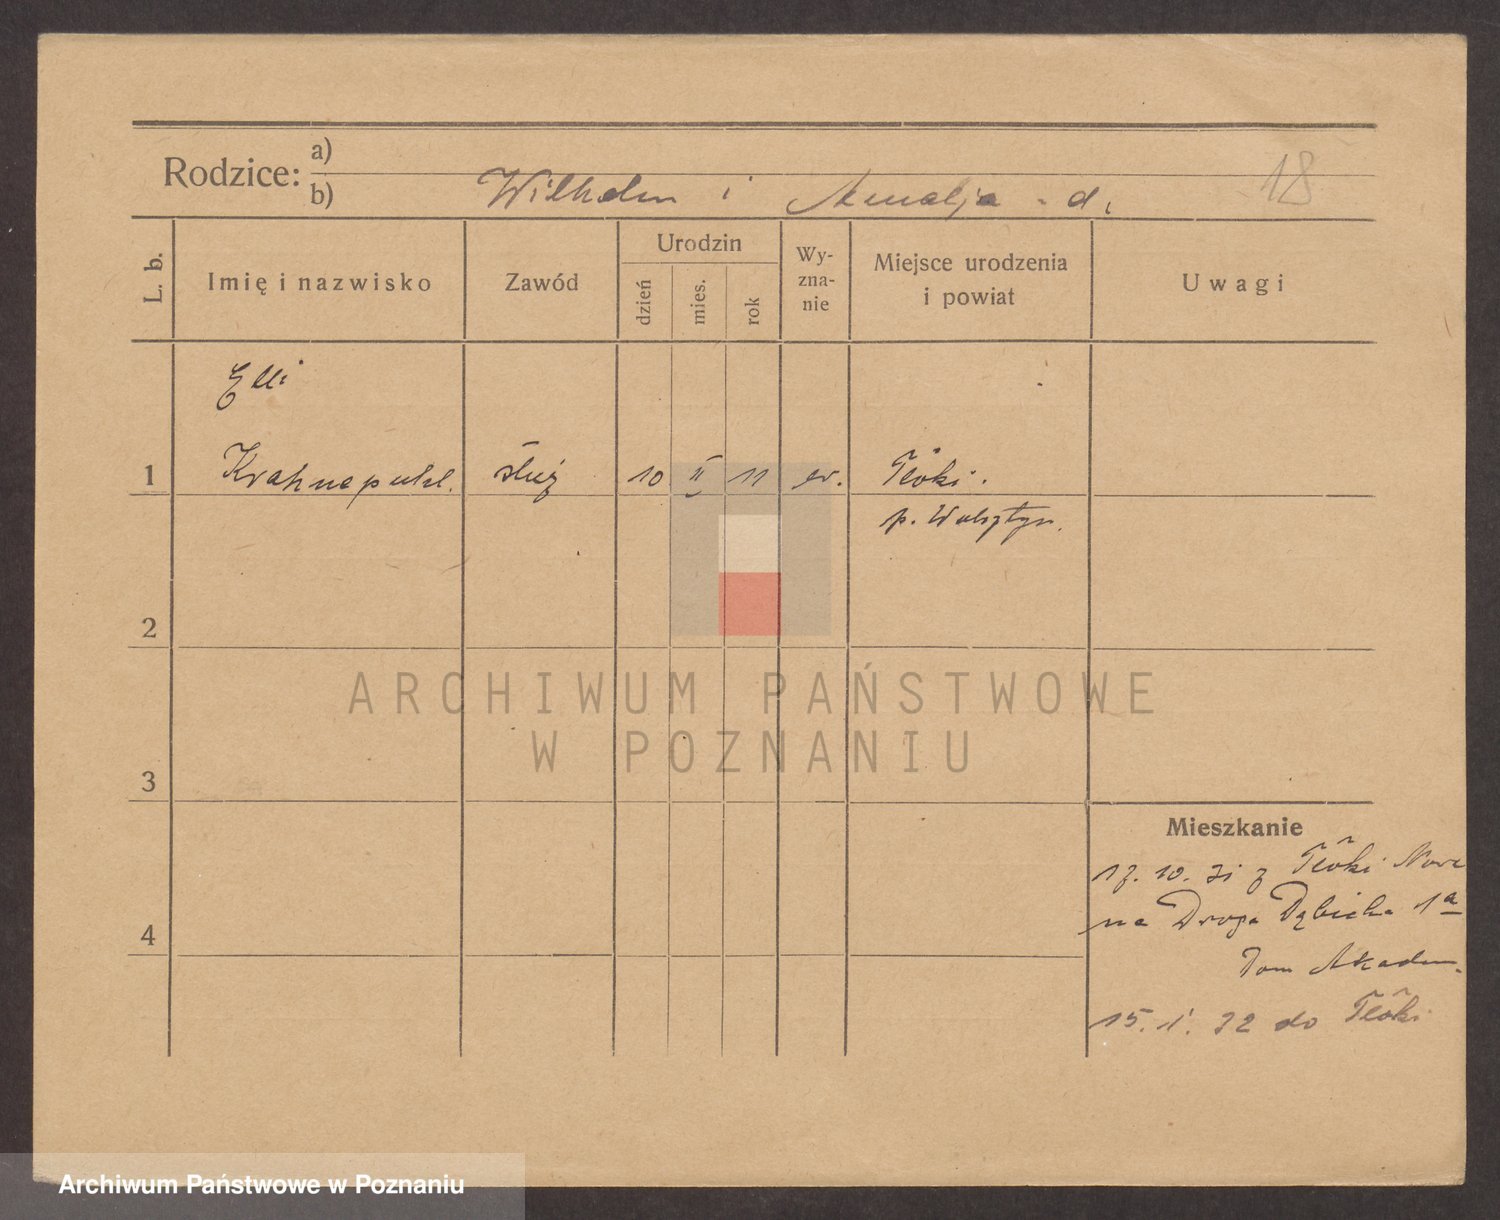 Rodzice: a)
b) Wilhelm i Amalja - d.
18
L. b.
Imię i nazwisko
Zawód
Urodzin
dzień
mies.
rok
Wy-
zna-
nie
Miejsce urodzenia
i powiat
Uwagi
Elli
1 służ 10 II 11 ew. Tłoki.
p. Wolsztyn.
2
ARCHIWUM PAŃSTWOWE
W POZNANIU
3
Mieszkanie
17. 10. 31 z Tłoki Nowe
na Droga Dębicka 1a
4
Dom Akadem.
15. 1. 32 do Tłoki
Archiwum Państwowe w Poznaniu